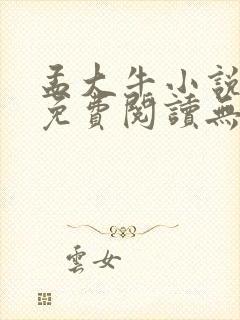 孟大牛小說
免費閱讀無
雲女